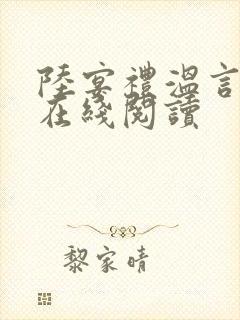 陸宴禮溫言
在綫閱讀
黎家晴